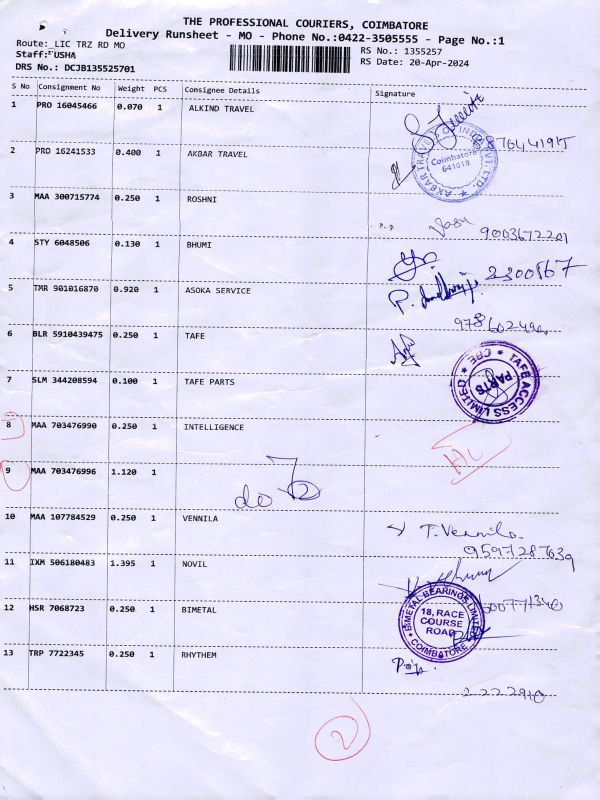 THE PROFESSIONAL COURIERS, COIMBATORE
Delivery Runsheet - MO - Phone No.:0422-3505555 - Page No.:1
Route: LIC TRZ RD MO
RS No.: 1355257
Staff: USHA
RS Date: 20-Apr-2024
DRS No.: DCJB135525701
S No Consignment No Weight PCS Consignee Details Signature
1 PRO 16045466 0.070 1 ALKIND TRAVEL
2 PRO 16241533 0.400 1 AKBAR TRAVEL
Coimbatore 641018
3 MAA 300715774 0.250 1 ROSHNI
9003672201
4 STY 6048506 0.130 1 BHUMI
2300867
5 TMR 901016870 0.920 1 ASOKA SERVICE
6 BLR 5910439475 0.250 1 TAFE
7 SLM 344208594 0.100 1 TAFE PARTS
TAFE ACCESS LIMITED ★ CBE ★ PARTS
8 MAA 703476990 0.250 1 INTELLIGENCE
9 MAA 703476996 1.120 1
do
10 MAA 107784529 0.250 1 VENNILA T. Vennila
9597287639
11 IXM 506180483 1.395 1 NOVIL
12 HSR 7068723 0.250 1 BIMETAL
BIMETAL BEARINGS LIMITED
18, RACE
COURSE
ROAD
COIMBATORE
13 TRP 7722345 0.250 1 RHYTHEM
2222940
2